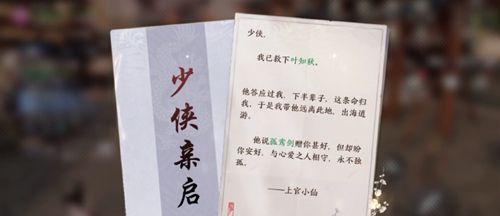 少侠亲启
少侠，
我已救下叶知秋。
他答应过我，下半辈子，这条命归
我，于是我带他远离此地，出海遨
游。
他说孤鸾剑赠你甚好，但却盼
你安好，与心爱之人相守，永不独
孤。
——上官小仙